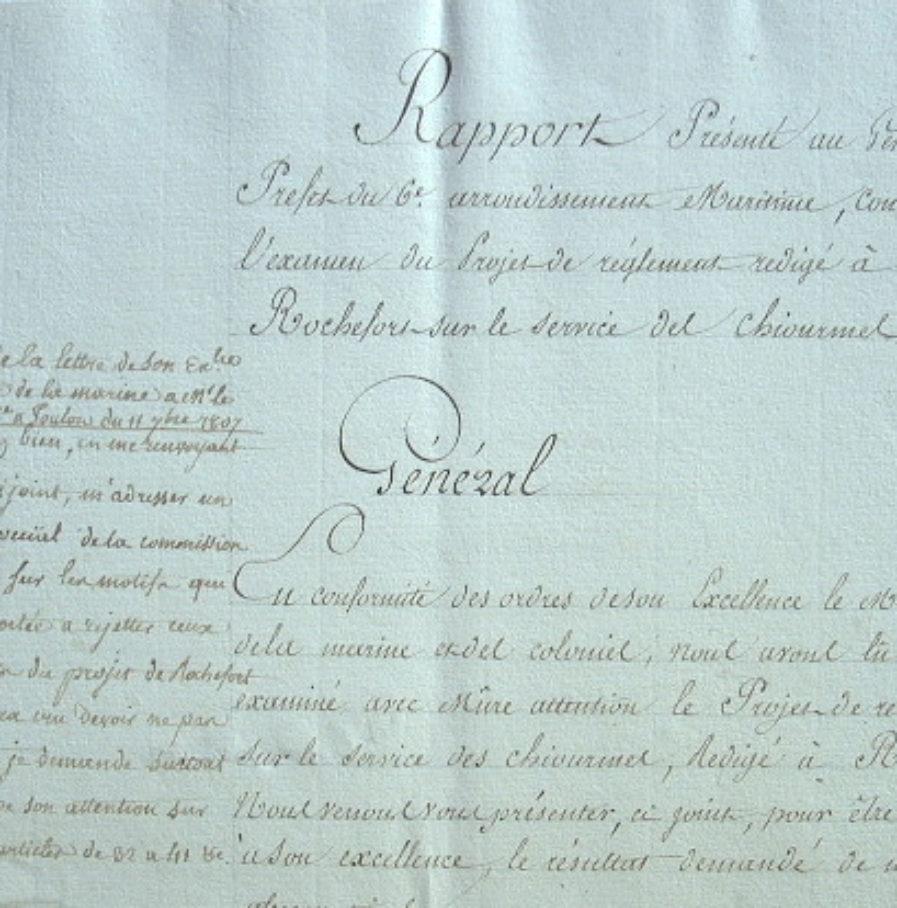 Rapport Présenté au
Prefet du 6e. arrondissement Maritime,
l'examen du Projet de réglement redigé à
Rochefort sur le service des chiourmes
Général
En conformité des ordres de son Excellence le
de la marine et des colonies, nous avons lû
examiné avec Mûre attention le Projet de
sur le service des chiourmes, Redigé à
Nous venons vous présenter, ci joint, pour être
à son excellence, le résultat demandé de
de la lettre de son Ex.ce
de la marine a Mr le
a Toulon du 11 7bre 1807
bien, en me renvoyant
joint, m'adresser un
de la commission
sur les motifs que
a rejetter ceux
du projet de Rochefort
cru devoir ne pas
je demande surtout
son attention sur
articles de 32 a 41 &c.